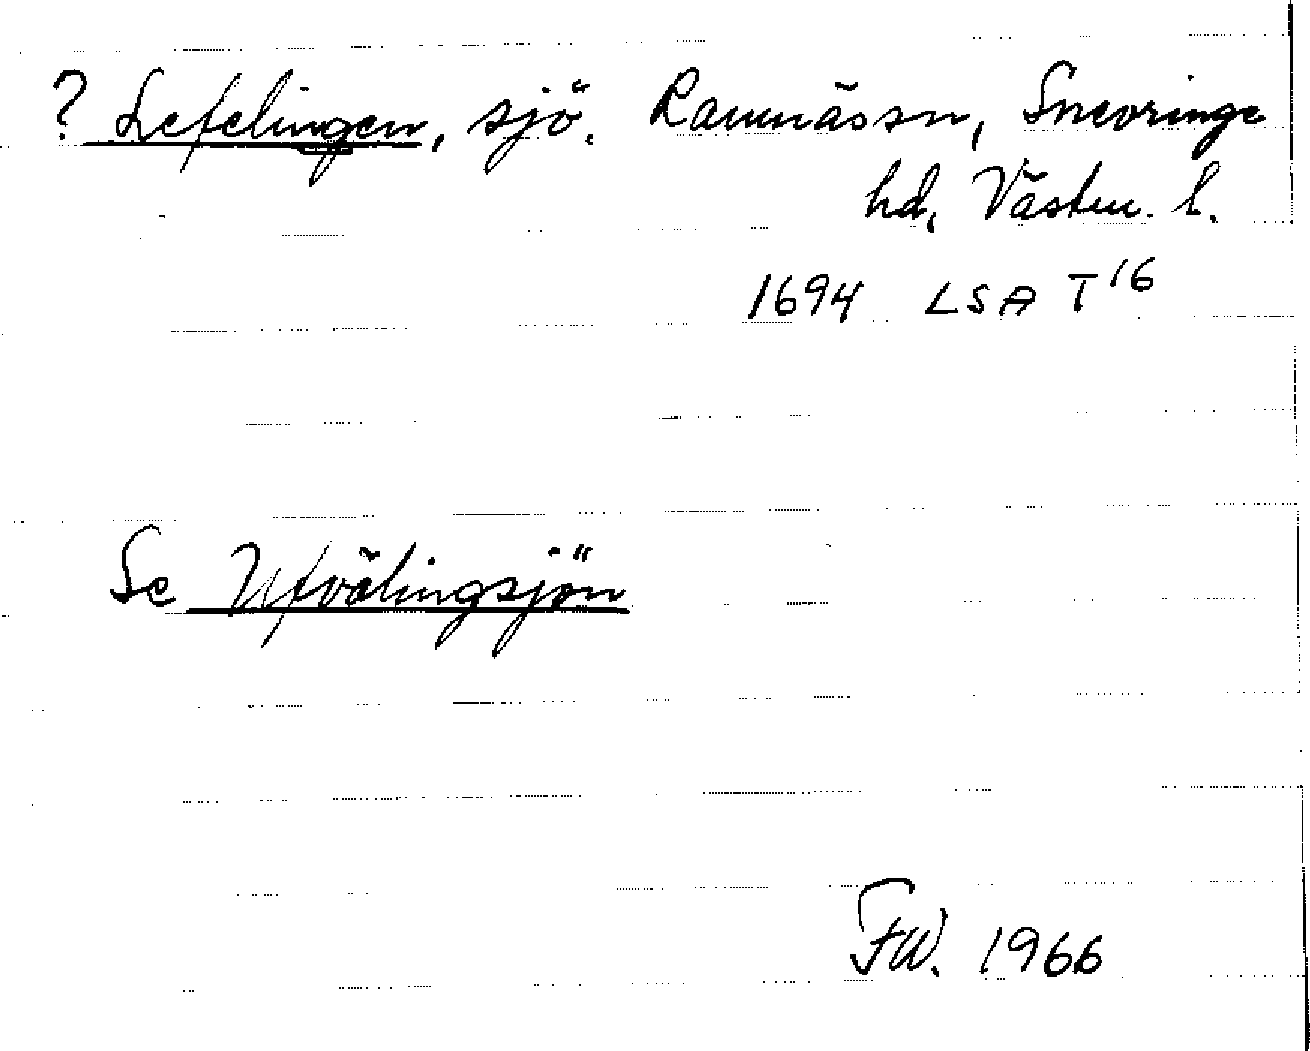 ? Sefelingen, sjö. Ramnässn, Snevringe
hd, Västm. l.
1694 LSA T 16
Se Utvälingsjön
FW. 1966